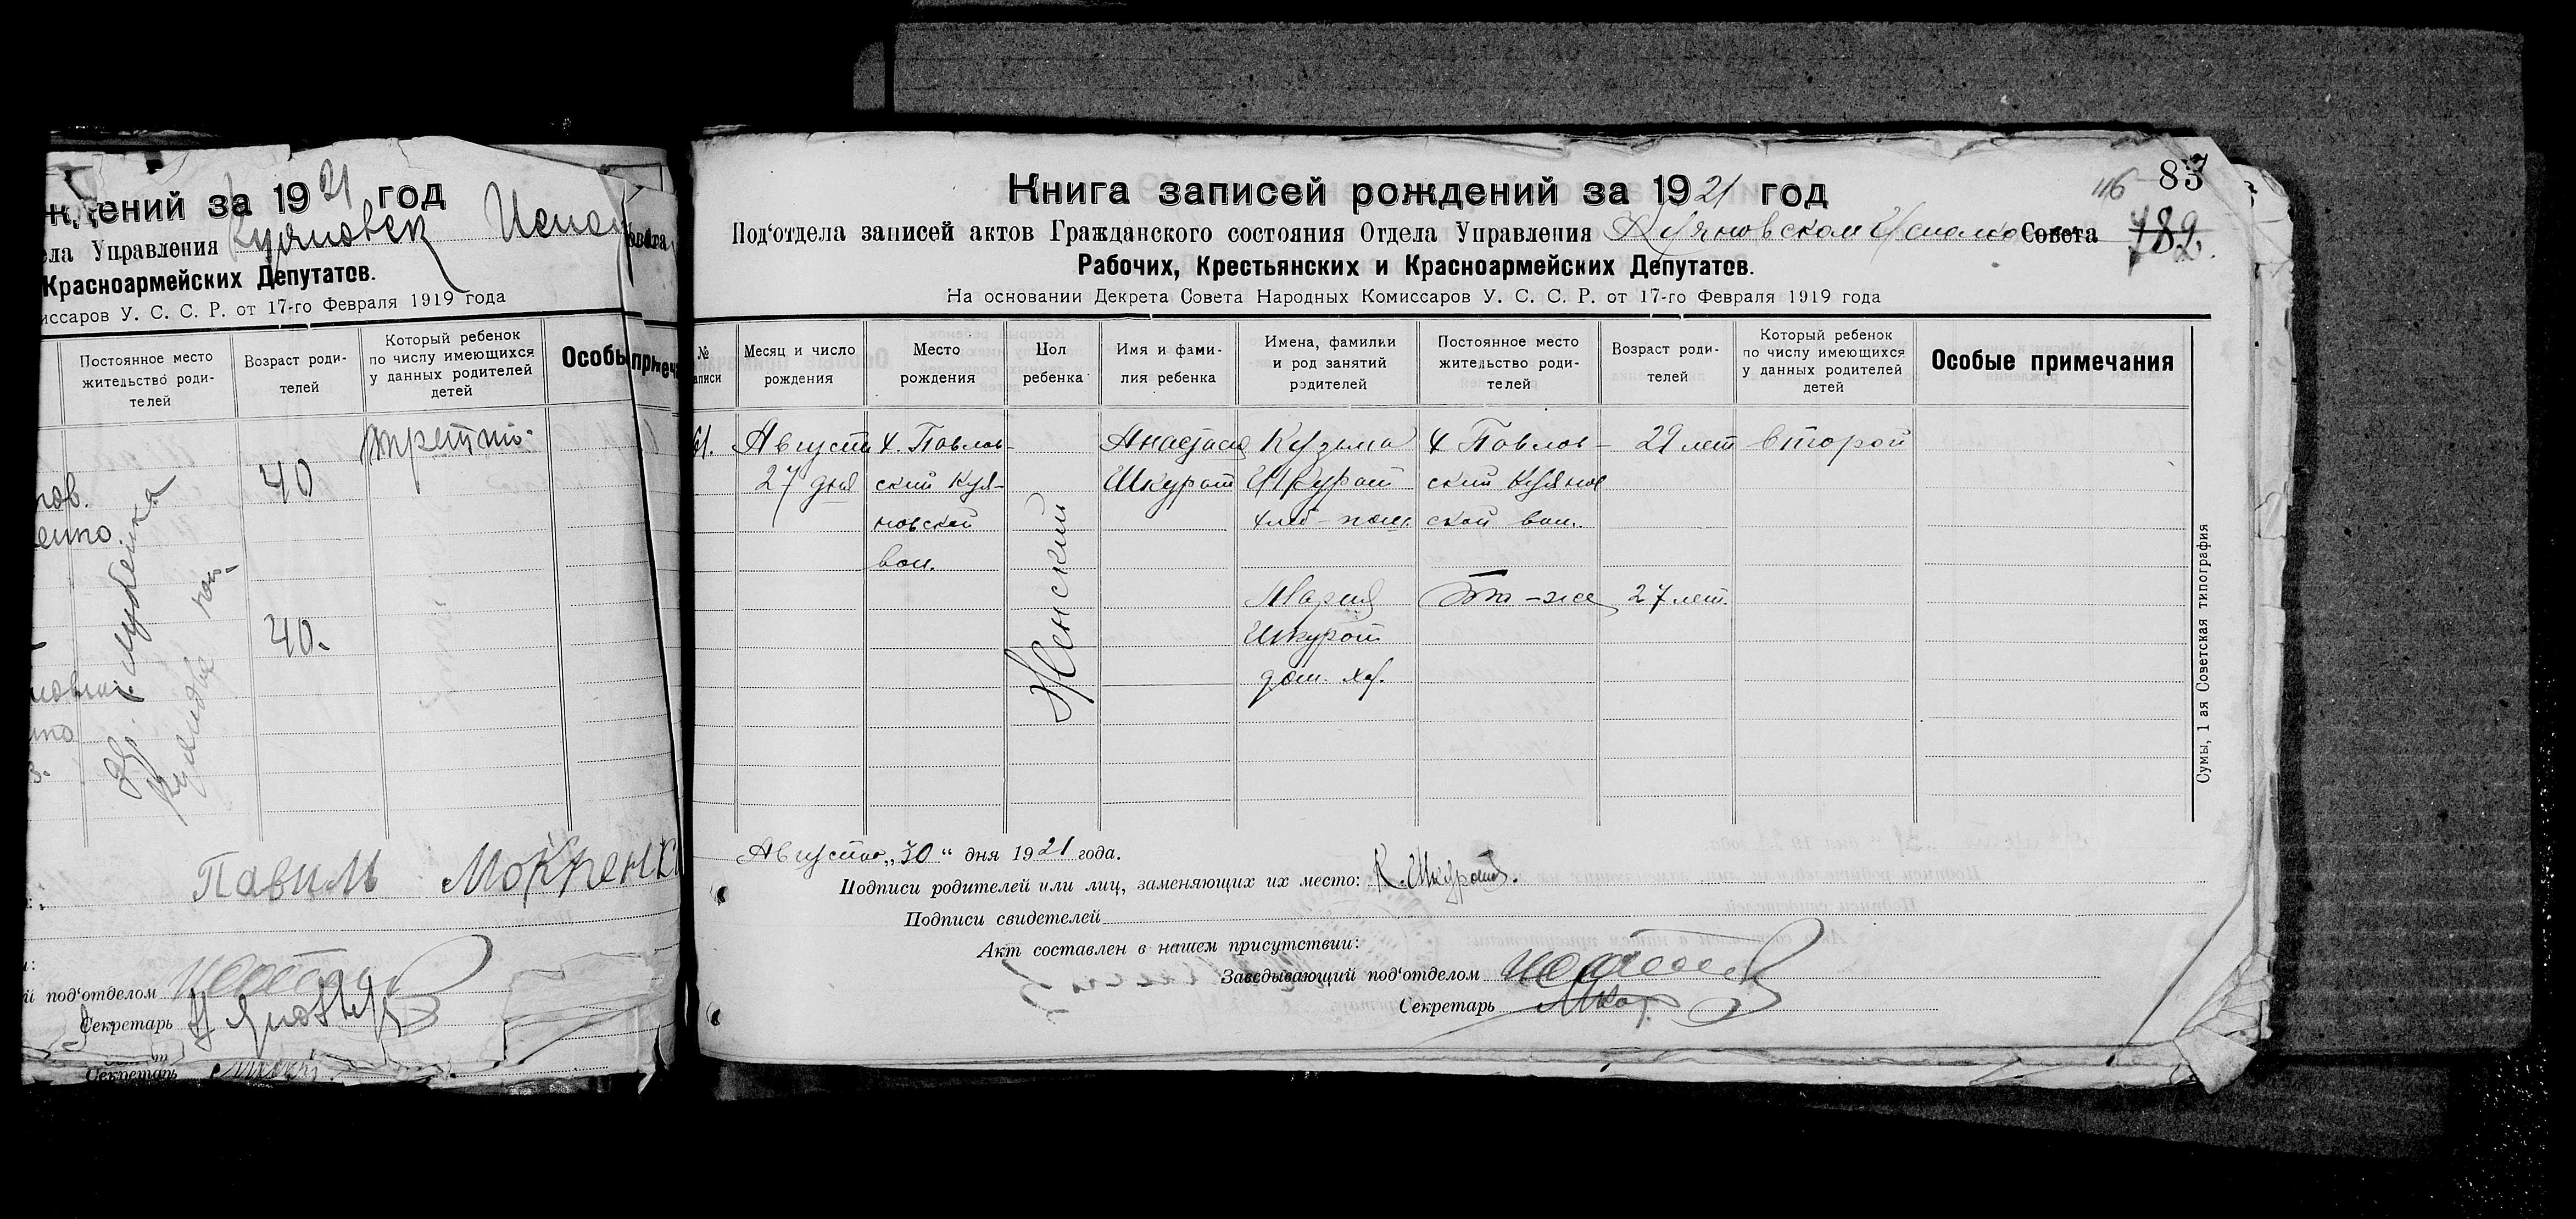 ждений за 1921 год
ела Управления Куяновск Испол
овета
Красноармейских Депутатов.
иссаров У. С. С. Р. от 17-го Февраля 1919 года
Постоянное место жительство роди-телей
Возраст роди-телей
Который ребенок по числу имеющихся у данных родителей детей
Особы
приме
третий
40
40.
Павиль Мокренко
й под'отделом
Секретарь
Секретарь
83
46
189.
Книга записей рождений за 1921 год
Под'отдела записей актов Гражданского состояния Отдела Управления Куяновском Исполко Совета
Рабочих, Крестьянских и Красноармейских Депутатов.
На основании Декрета Совета Народных Комиссаров У. С. С. Р. от 17-го Февраля 1919 года
№ аписи
Месяц и число рождения
Место рождения
Пол ребенка
Имя и фами-лия ребенка
Имена, фамилии и род занятий родителей
Постоянное место жительство роди-телей
Возраст роди-телей
Который ребенок по числу имеющихся у данных родителей детей
Особые примечания
61.
Августа
27 дня
х. Павлов-
ский Куя-
новской
вол.
Женский
Анастасия
Шкурат
Кузьма
Шкурат
хлеб-паш.
х Павлов-
ский Куянов
ской вол.
29 лет
второй
Мария
Шкурат
дом. хоз.
То-же
27 лет.
Августа „30“ дня 1921 года.
Подписи родителей или лиц, заменяющих их место: К. Шкурат.
Подписи свидетелей
Акт составлен в нашем присутствии:
Заведывающий под'отделом
Секретарь
Сумы, 1 ая Советская типография